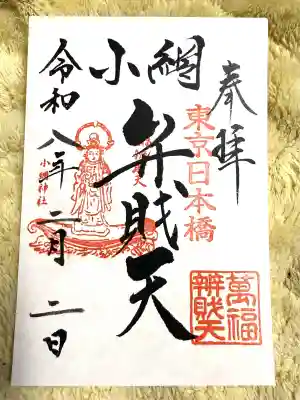 奉拝
東京日本橋
小網
弁財天
令和八年二月二日
小網神社
萬福
辨財天